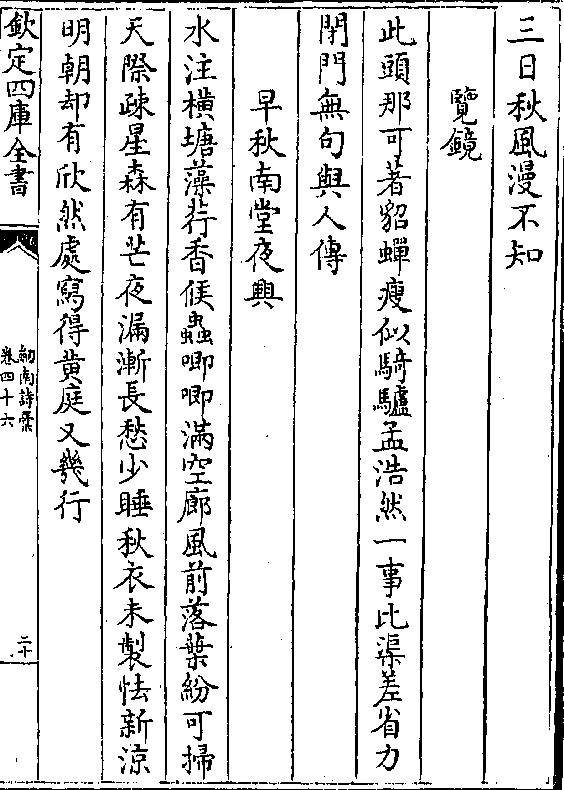 三日秋風漫不知
覽鏡
此頭那可著貂蟬瘦似騎驢孟浩然一事比渠差省力
閉門無句與人傳
早秋南堂夜興
水注橫塘藻荇香候蟲唧唧滿空廊風前落葉紛可掃
天際疎星森有芒夜漏漸長愁少睡秋衣未製怯新涼
明朝却有欣然處寫得黄庭又幾行
欽定四庫全書
劒南詩藁
卷四十六
二十